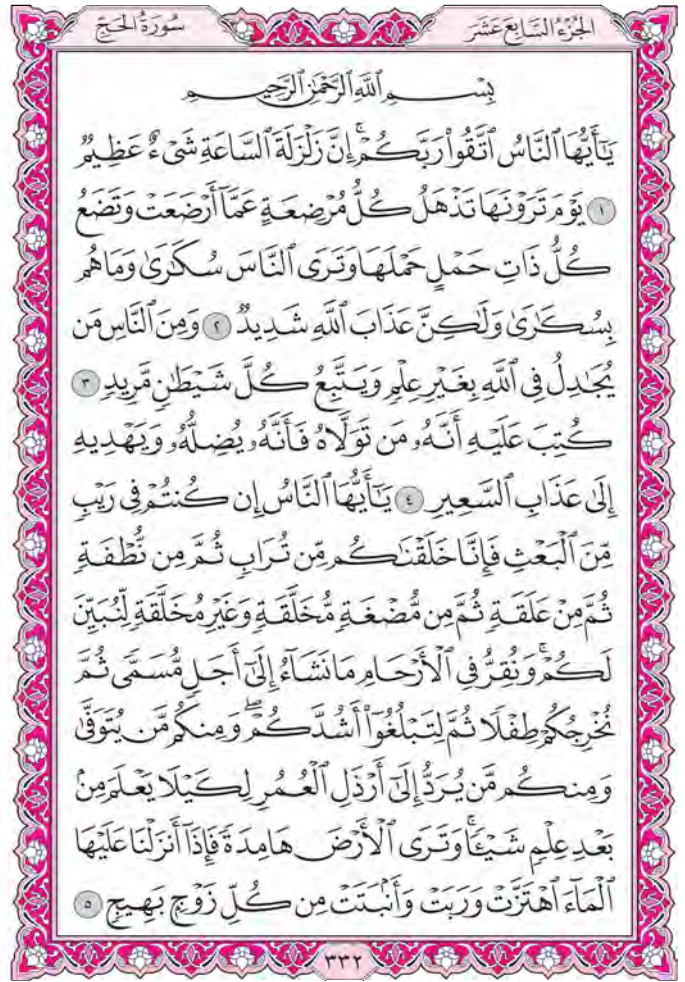 الجُزْءُ السَّابِعَ عَشَرَ
سُورَةُ الحَجِّ
بِسۡمِ ٱللَّهِ ٱلرَّحۡمَٰنِ ٱلرَّحِيمِ
يَٰٓأَيُّهَا ٱلنَّاسُ ٱتَّقُواْ رَبَّكُمۡۚ إِنَّ زَلۡزَلَةَ ٱلسَّاعَةِ شَيۡءٌ عَظِيمٞ
١ يَوۡمَ تَرَوۡنَهَا تَذۡهَلُ كُلُّ مُرۡضِعَةٍ عَمَّآ أَرۡضَعَتۡ وَتَضَعُ
كُلُّ ذَاتِ حَمۡلٍ حَمۡلَهَا وَتَرَى ٱلنَّاسَ سُكَٰرَىٰ وَمَا هُم
بِسُكَٰرَىٰ وَلَٰكِنَّ عَذَابَ ٱللَّهِ شَدِيدٞ ٢ وَمِنَ ٱلنَّاسِ مَن
يُجَٰدِلُ فِي ٱللَّهِ بِغَيۡرِ عِلۡمٖ وَيَتَّبِعُ كُلَّ شَيۡطَٰنٖ مَّرِيدٖ ٣
كُتِبَ عَلَيۡهِ أَنَّهُۥ مَن تَوَلَّاهُ فَأَنَّهُۥ يُضِلُّهُۥ وَيَهۡدِيهِ
إِلَىٰ عَذَابِ ٱلسَّعِيرِ ٤ يَٰٓأَيُّهَا ٱلنَّاسُ إِن كُنتُمۡ فِي رَيۡبٖ
مِّنَ ٱلۡبَعۡثِ فَإِنَّا خَلَقۡنَٰكُم مِّن تُرَابٖ ثُمَّ مِن نُّطۡفَةٖ
ثُمَّ مِنۡ عَلَقَةٖ ثُمَّ مِن مُّضۡغَةٖ مُّخَلَّقَةٖ وَغَيۡرِ مُخَلَّقَةٖ لِّنُبَيِّنَ
لَكُمۡۚ وَنُقِرُّ فِي ٱلۡأَرۡحَامِ مَا نَشَآءُ إِلَىٰٓ أَجَلٖ مُّسَمّٗى ثُمَّ
نُخۡرِجُكُمۡ طِفۡلٗا ثُمَّ لِتَبۡلُغُوٓاْ أَشُدَّكُمۡۖ وَمِنكُم مَّن يُتَوَفَّىٰ
وَمِنكُم مَّن يُرَدُّ إِلَىٰٓ أَرۡذَلِ ٱلۡعُمُرِ لِكَيۡلَا يَعۡلَمَ مِنۢ
بَعۡدِ عِلۡمٖ شَيۡـٔٗاۚ وَتَرَى ٱلۡأَرۡضَ هَامِدَةٗ فَإِذَآ أَنزَلۡنَا عَلَيۡهَا
ٱلۡمَآءَ ٱهۡتَزَّتۡ وَرَبَتۡ وَأَنۢبَتَتۡ مِن كُلِّ زَوۡجِۭ بَهِيجٖ ٥
٣٣٢